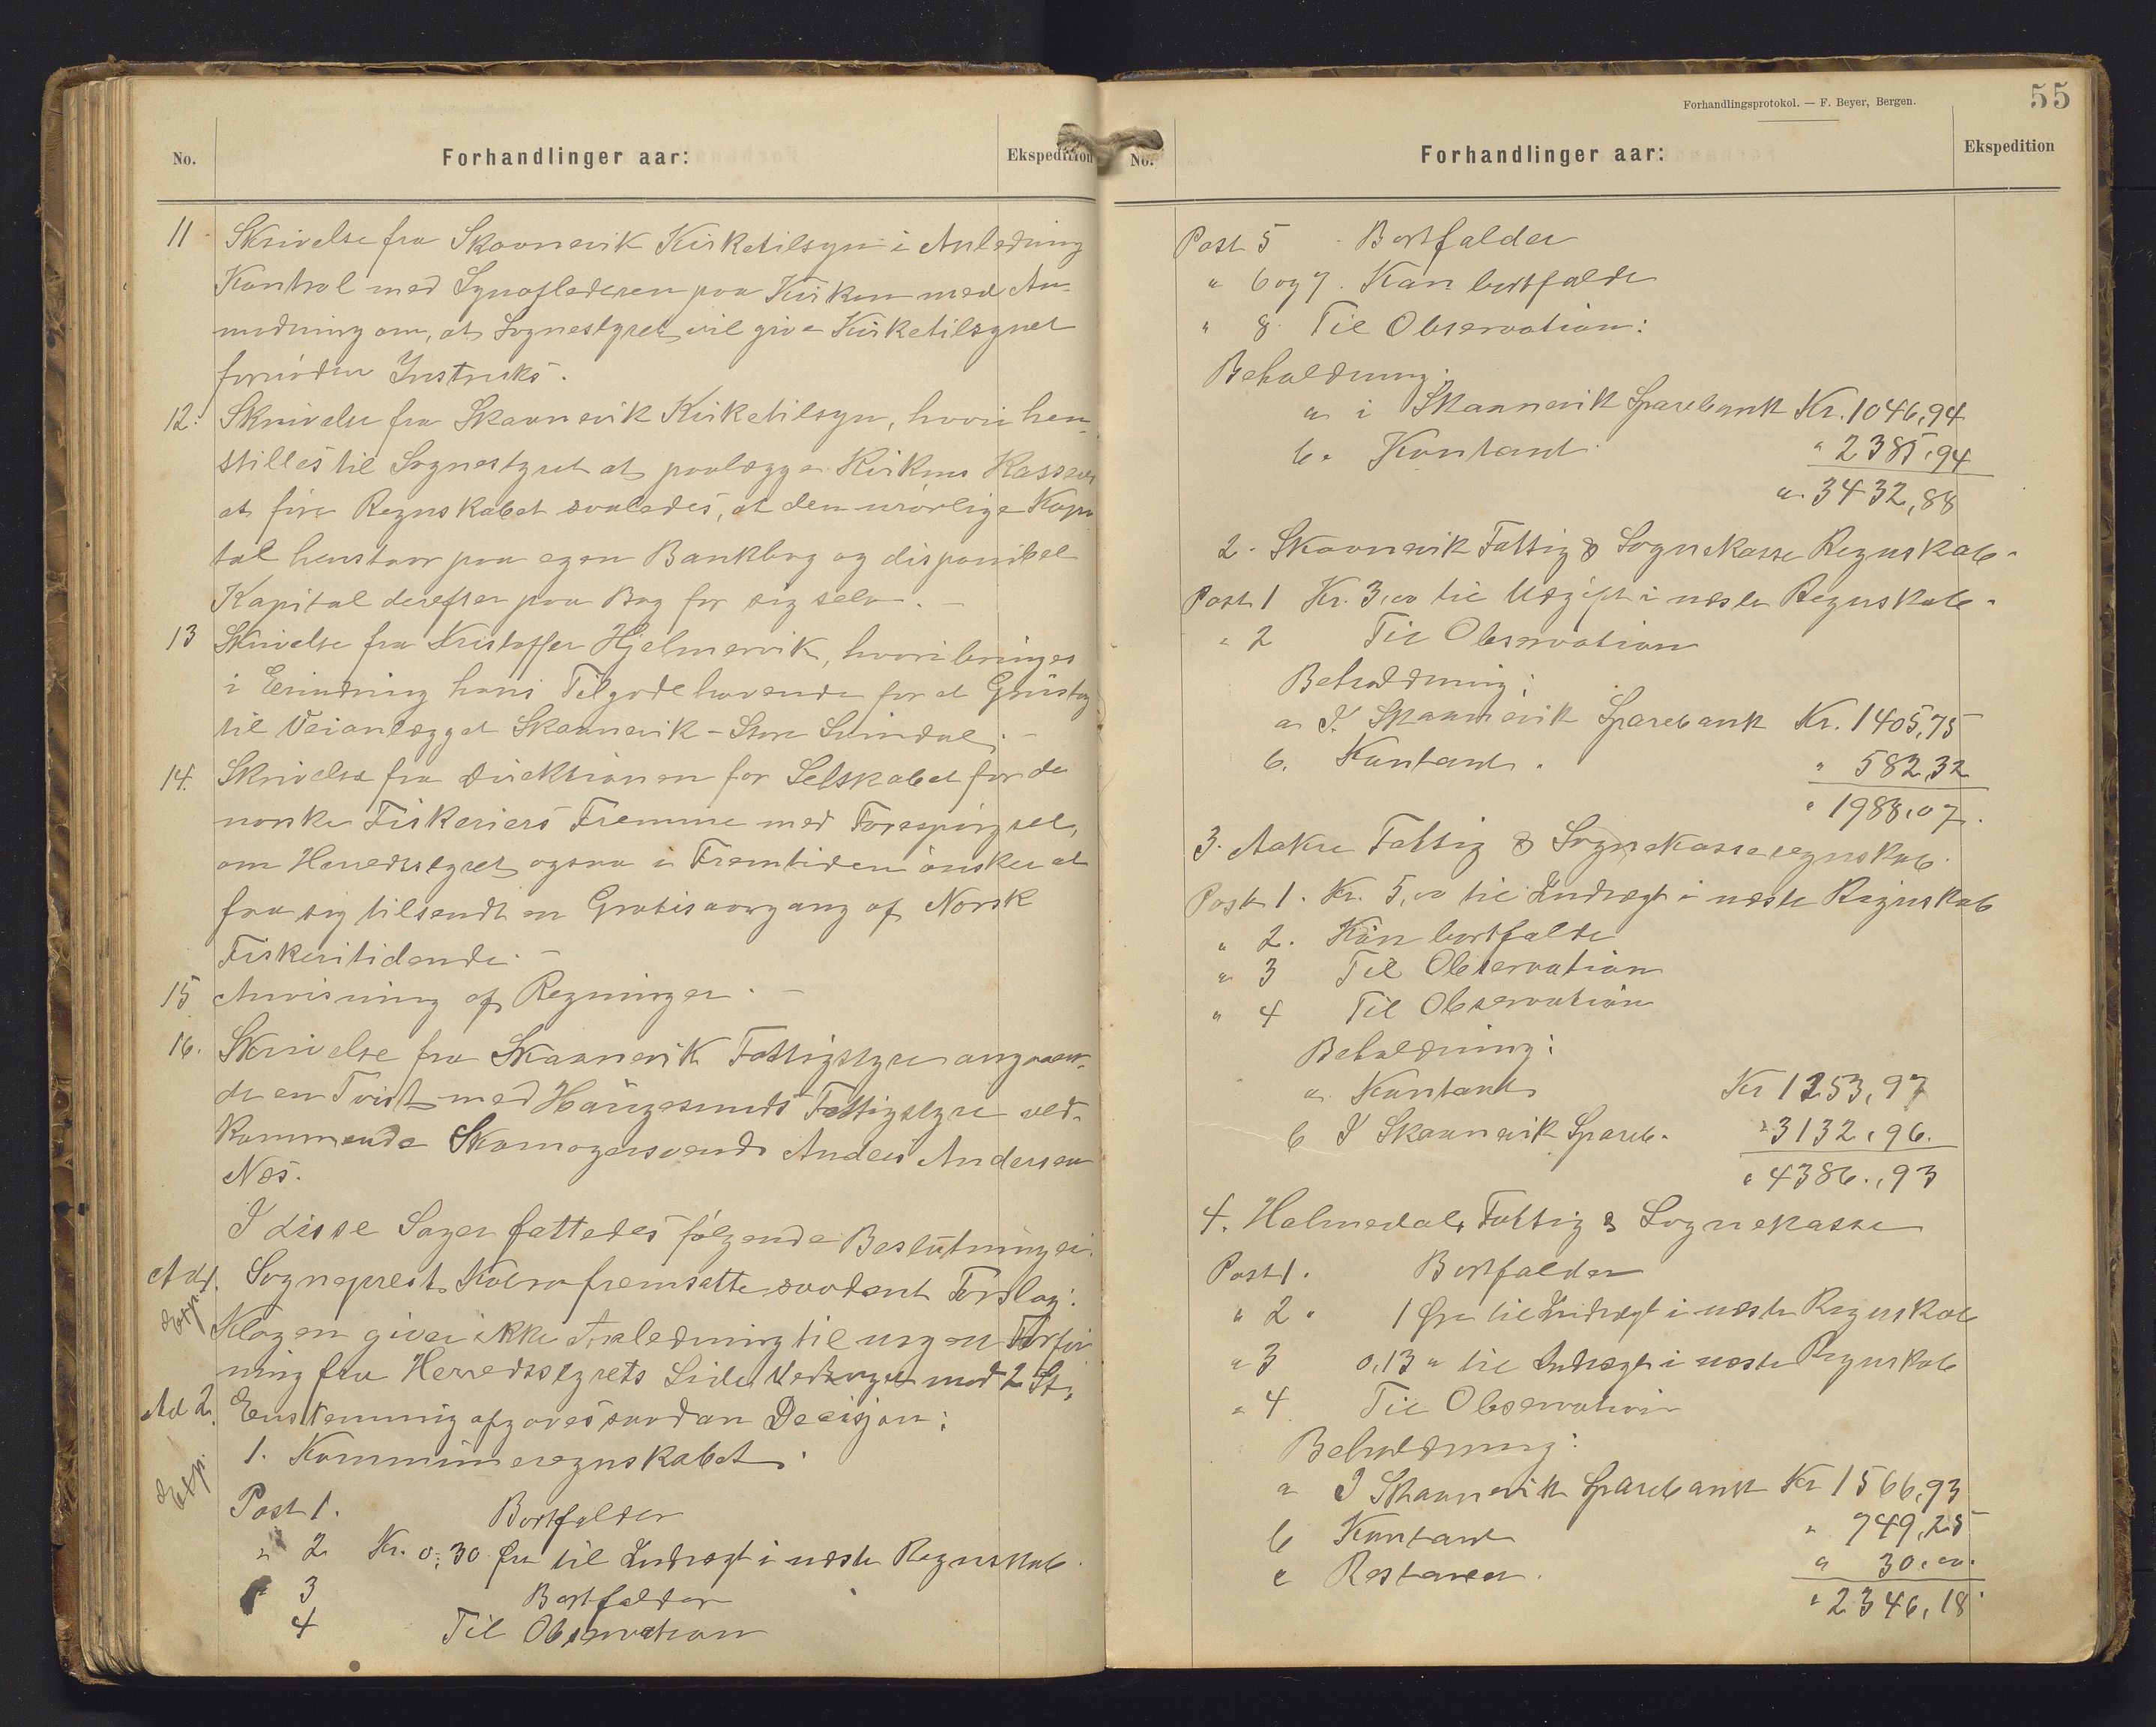 No.
Forhandlinger aar:
Ekspedition
11 Skrivelse fra Skaanevik Kirketilsyn i Anledning
Kontrol med Synafladeren paa Kirken med An-
modning om, at Sognestyret vil give Kirketilsynet
fornöden Instruks.
12. Skrivelse fra Skaanevik Kirketilsyn, hvori hen-
stilles til Sognestyret at paalægge Kirkens Kasserer
at före Regnskabet saaledes, at den urörlige Kapi
tal henstaar paa egen Bankbog og disponibel
Kapital derefter paa Bog for sig selv. –
13 Skrivelse fra Kristoffer Hjelmervik, hvori bringes
i Erindring hans Tilgodehavende for et Grüstag
til Veianlægget Skaanevik – Store Svindal. –
14. Skrivelse fra Direktionen for Selskabet for de
norske Fiskeriers Fremme med Forespörgsel,
om Herredsstyret ogsaa i Fremtiden önsker at
faa sig tilsendt en Gratisaargang af Norsk
Fiskeritidende. –
15 Anvisning af Regninger. –
16. Skrivelse fra Skaanevik Fattigstyre angaaen-
de en Tvist med Haugesunds Fattigstyre ved-
kommende Skomagersvend Anders Andersen
Næs.
I disse Sager fattedes følgende Beslutninger:
Ad 1. Sogneprest fremsatte saadant Forslag:
Exp.
Klagen giver ikke Anledning til nogen Forföi
ning fra Herredsstyrets Side. Vedtaget mod 2 St.
Ad 2. Enstemmig afgaves saadan Decisjon:
1. Kommuneregnskabet.
Exp.
Post 1. Bortfalder
" 2 Kr. 0,30 Øre til Indtægt i næste Regnskab.
" 3 Bortfalder
4 Til Observation
Forhandlingsprotokol. — F. Beyer, Bergen.
55
No.
Forhandlinger aar:
Ekspedition
Post 5 Bortfalder
" 6 og 7. Kan bortfalde
" 8. Til Observation:
Beholdning:
a i Skaanevik Sparebank Kr. 1046,94
b. Kontant " 2385,94
". 3432,88
2. Skaanevik Fattig & Sognekasse Regnskab.
Post 1 Kr. 3,00 til Udgift i næste Regnskab.
" 2 Til Observation
Beholdning:
a I Skaanevik Sparebank Kr. 1405,75
b. Kontant. " 582,32
" 1988,07.
3. Aakre Fattig & Sognekasseregnskab.
Post 1. Kr. 5,00 til Indtægt i næste Regnskab
" 2. Kan bortfalde
" 3 Til Observation
" 4 Til Observation
Beholdning:
a. Kontant Kr 1253,97
b I Skaanevik Spareb. " 3132,96.
" 4386,93
4. Holmedals Fattig & Sognekasse
Post 1. Bortfalder
" 2. 1 Øre til Indtægt i næste Regnskab
" 3 0,13 " til Indtægt i næste Regnskab
" 4. Til Observation
Beholdning:
a I Skaanevik Sparebank Kr 1566,93
b Kontant " 749,25
c Restancer. " 30,00.
" 2346,18